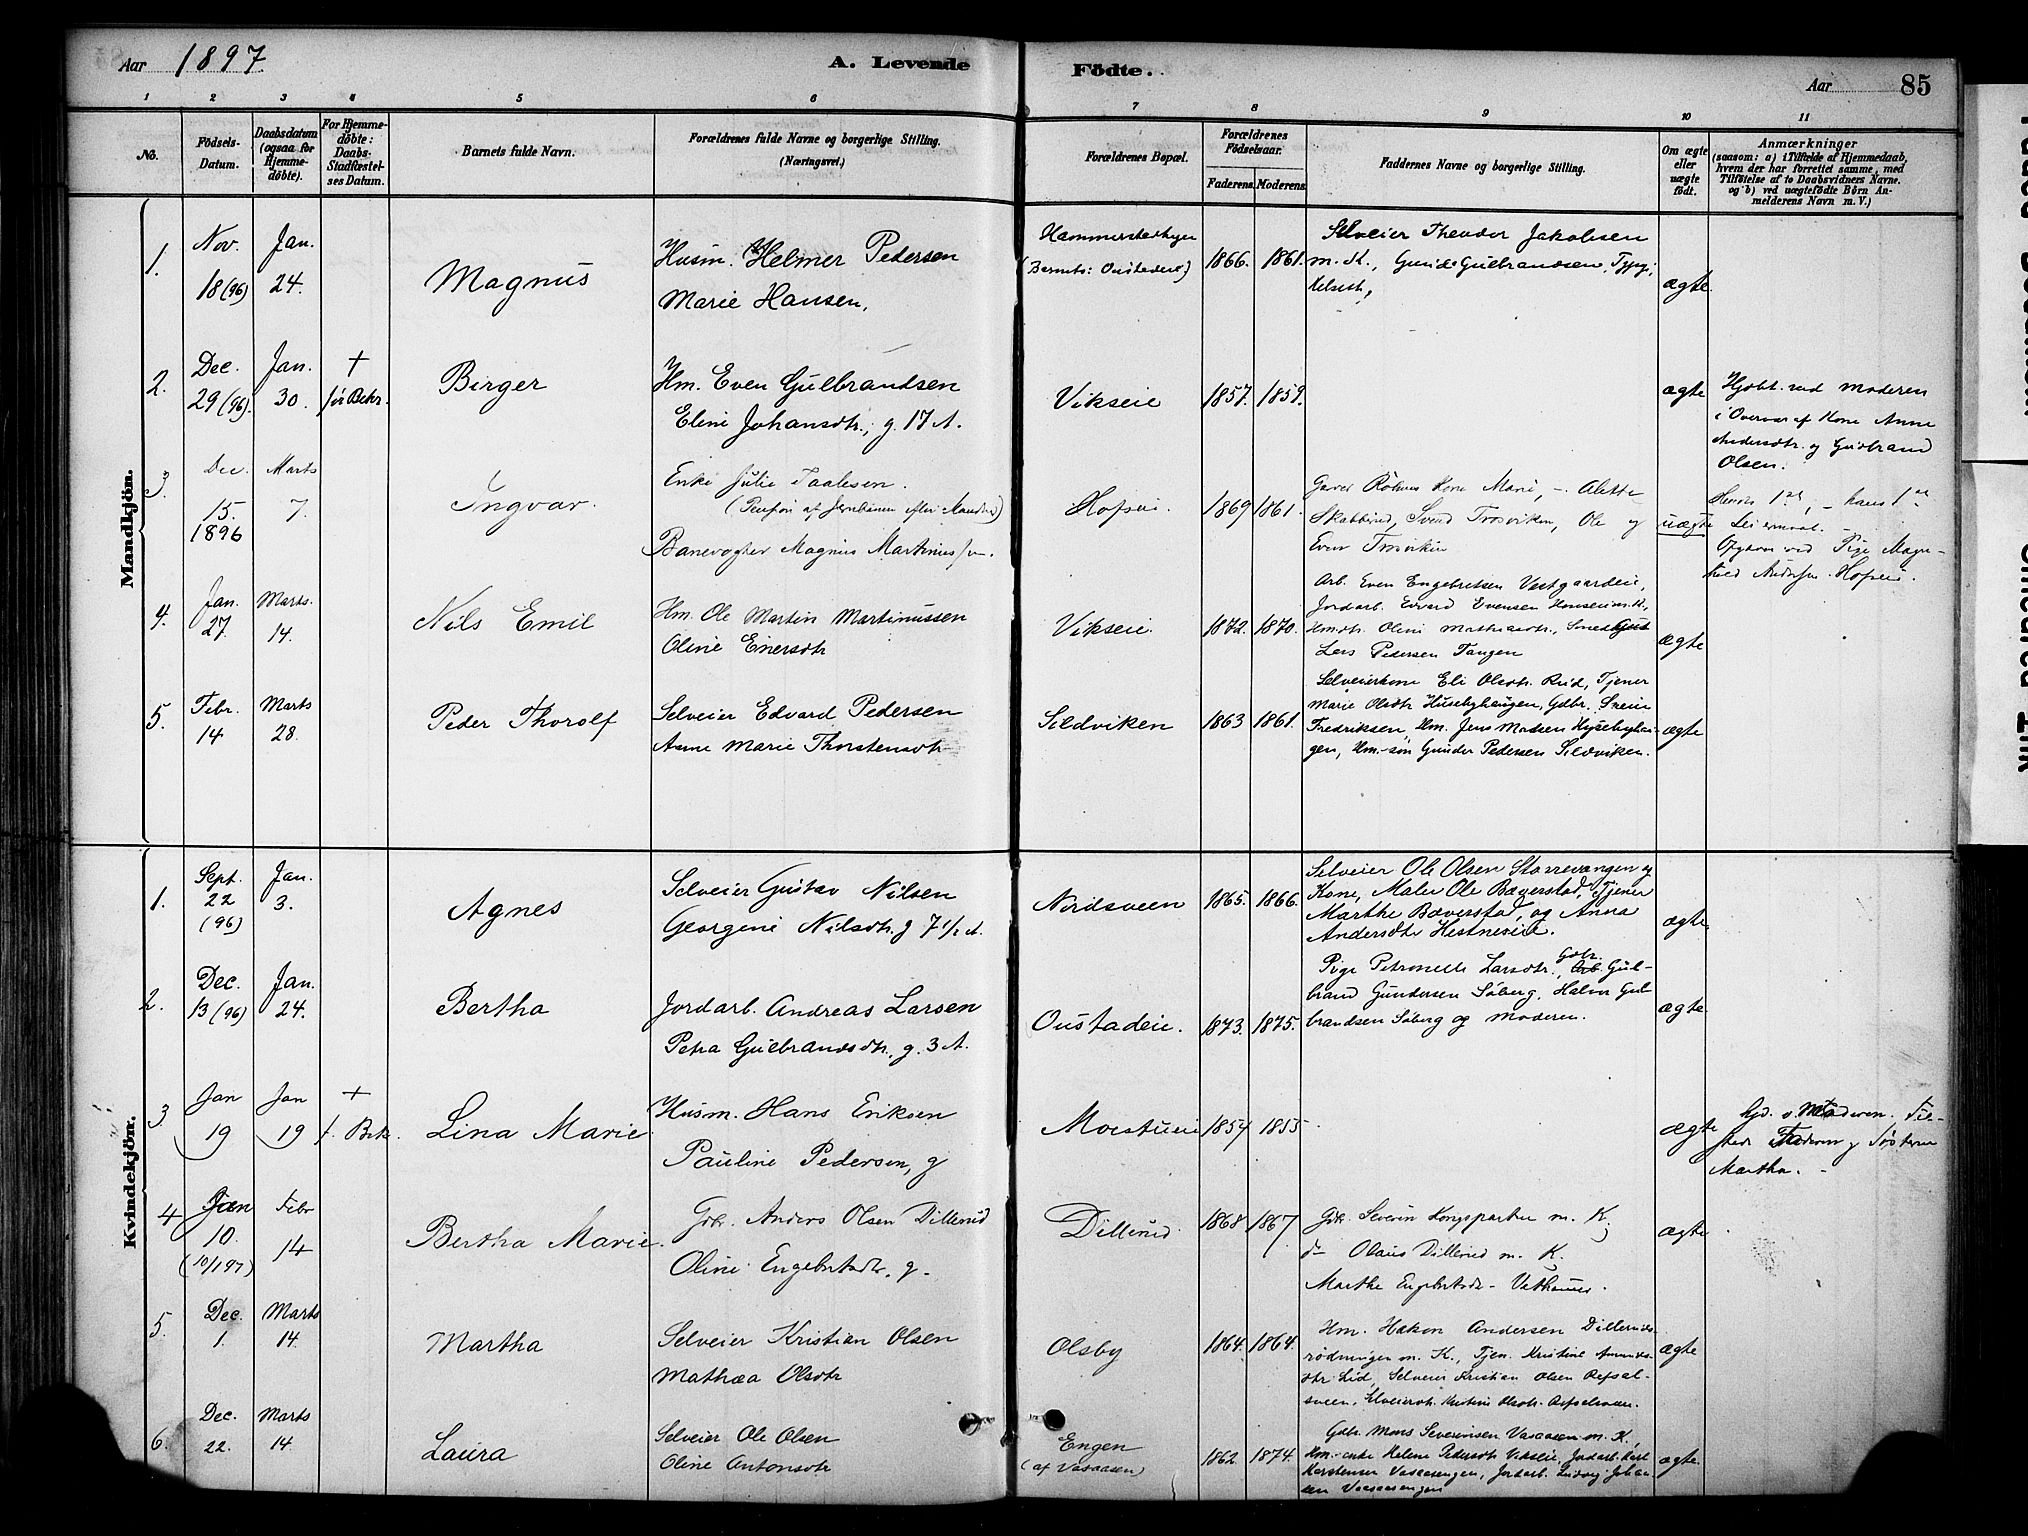 Aar 1897.
A. Levende Fødte.
Aar 85
1 2 3 4 5 6 7 8 9 10 11
No.
Fødsels-Datum.
Daabsdatum (ogsaa for Hjemme-døbte).
For Hjemme-døbte: Daabs-Stadfæstel-ses Datum.
Barnets fulde Navn.
Forældrenes fulde Navne og borgerlige Stilling. (Næringsvei.)
Forældrenes Bopæl.
Forældrenes Fødselsaar.
Faderens. Moderens.
Faddernes Navne og borgerlige Stilling.
Om ægte eller uægte født.
Anmærkninger
(saasom: a) i Tilfælde af Hjemmedaab, hvem der har forrettet samme, med Tilføielse af to Daabsvidners Navne, og b) ved uægtefødte Børn An-melderens Navn m. V.)
Mandkjøn.
1. Nov. 18 (96) Jan. 24. Magnus
Husm. Helmer Pedersen
Marie Hansen,
(Barnets: Oustadeie)
1866. 1861.
Selveier Theodor Jakobsen
m. K., Gulbrandsen,
ægte.
2. Dec. 29 (96). Jan. 30. + før Bekr. Birger
Hm. Even Gulbrandsen
Eline Johansdtr., g. 17 A.
Vikseie 1857. 1859.
ægte
Hjdbt. ved Moderen
i Overvær af Kone Anne
Andersdtr. og Gudbrand
Olsen.
3 Dec. 15. 1896 Marts 7. Ingvar.
Enke Julie Paalesen.
Banevogter Magnus Martinius
Hofseie. 1869 1861.
Kone Marie, - Alette
Svend Trosviken, Ole og
Even
uægte
Leiermaal.
Pige
Hofseie.
4. Jan. 27. Marts. 14. Nils Emil
Hm. Ole Martin Martinussen
Oline Enersdtr
Vikseie. 1872. 1870.
Arb. Even Engebretsen Vestgaardeie,
Jordarb. Edvard Evensen m. K.,
Hmdtr. Oline Mathiasdtr.,
Lars Pedersen Tangen
ægte
5. Febr. 14 Marts 28. Peder Thorolf
Selveier Edvard Pedersen
Anne Marie Thorstensdtr
Sildviken 1863 1861.
Selveierkone Eli Olsdtr. Tjener
Marie Olsdtr Husebyhaugen, Gdbr.
Fredriksen, Hm. Jens Madsen
gen, Hm.-søn Gunder Pedersen Sildviken.
ægte
Kvindekjøn.
1. Sept. 22 (96) Jan. 3. Agnes
Selveier Gustav Nilsen
Georgine Nilsdtr. g 7 1/2 A.
Nordsveen 1865. 1866.
Selveier Ole Olsen Storrevangen og
Kone, Maler Ole Bæverstad, Tjener
Marthe Bæverstad, og Anna
Andersdtr Hestneseie.
ægte
2. Dec. 13 (96) Jan. 24. Bertha
Jordarb. Andreas Larsen
Petra Gulbrandsdtr., g. 3 A.
Oustadeie. 1873. 1875.
Pige Petronelle Larsdtr., Gdbr. Gul-
brand Gundersen Søberg, Halvor Gul-
brandsen Søberg og Moderen.
ægte.
3 Jan 19 Jan 19 + f. Bek. Lina Marie
Husm. Hans Eriksen
Pauline Pedersen, g
Moestueie 1857 1855
ægte
Hjd. v. Moderen. Til-
stede Faderen og Søsteren
Martha. -
4 Jan 10. (10/1 97) Febr 14 Bertha Marie.
Gdbr. Anders Olsen Dillerud
Oline Engebretsdtr., g.
Dillerud. 1868 1867
Gdbr. Severin Kongsparten m. K.
do Olaus Dillerud m. K.
Marthe Engebretsdtr
ægte
5. Dec. 1. Marts 14. Martha
Selveier Kristian Olsen
Mathea Olsdtr
Olsby 1864. 1864.
Hm. Hakon Andersen Dilleruds-
rødningen m. K., Tjen. Kristine Amunds-
dtr. Lid, Selveier Kristian Olsen Refsal-
sveen, Selveierdtr. Kristine Olsdtr. Refsalsveen.
ægte
6. Dec. 22. Marts 14. Laura
Selveier Ole Olsen
Oline Antonsdtr
Engen
(af Vasaasen)
1862 1874.
Gdbr Mons Severinsen Vasaasen m. K.,
Hm.-enke Helene Pedersdtr Vikseie, Jordarb. Karl
Karstensen Vasaasengen, Jordarb. Ludvig Johan-
sen Vasaasengen
ægte.